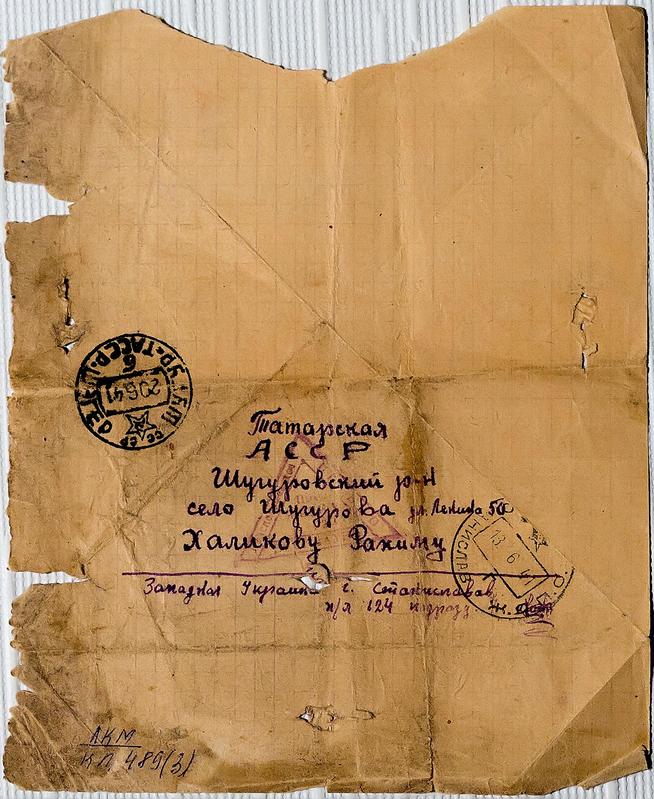 Татарская
АССР
Шугуровский р-н
село Шугурова ул. Ленина 50
Халикову Рахиму
Западная Украина г. Станиславов
п/я 124
20.6.41
6
АКМ
КП 489(3)